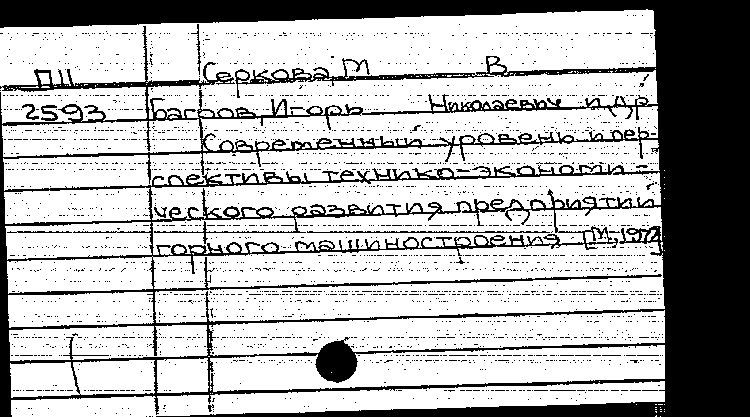 ПII Серкова, М В
2593 Багров, Игорь Николаевич и др
Современный уровень и пер-
спективы технико-экономи-
ческого развития предприятий
горного машиностроения [М.,